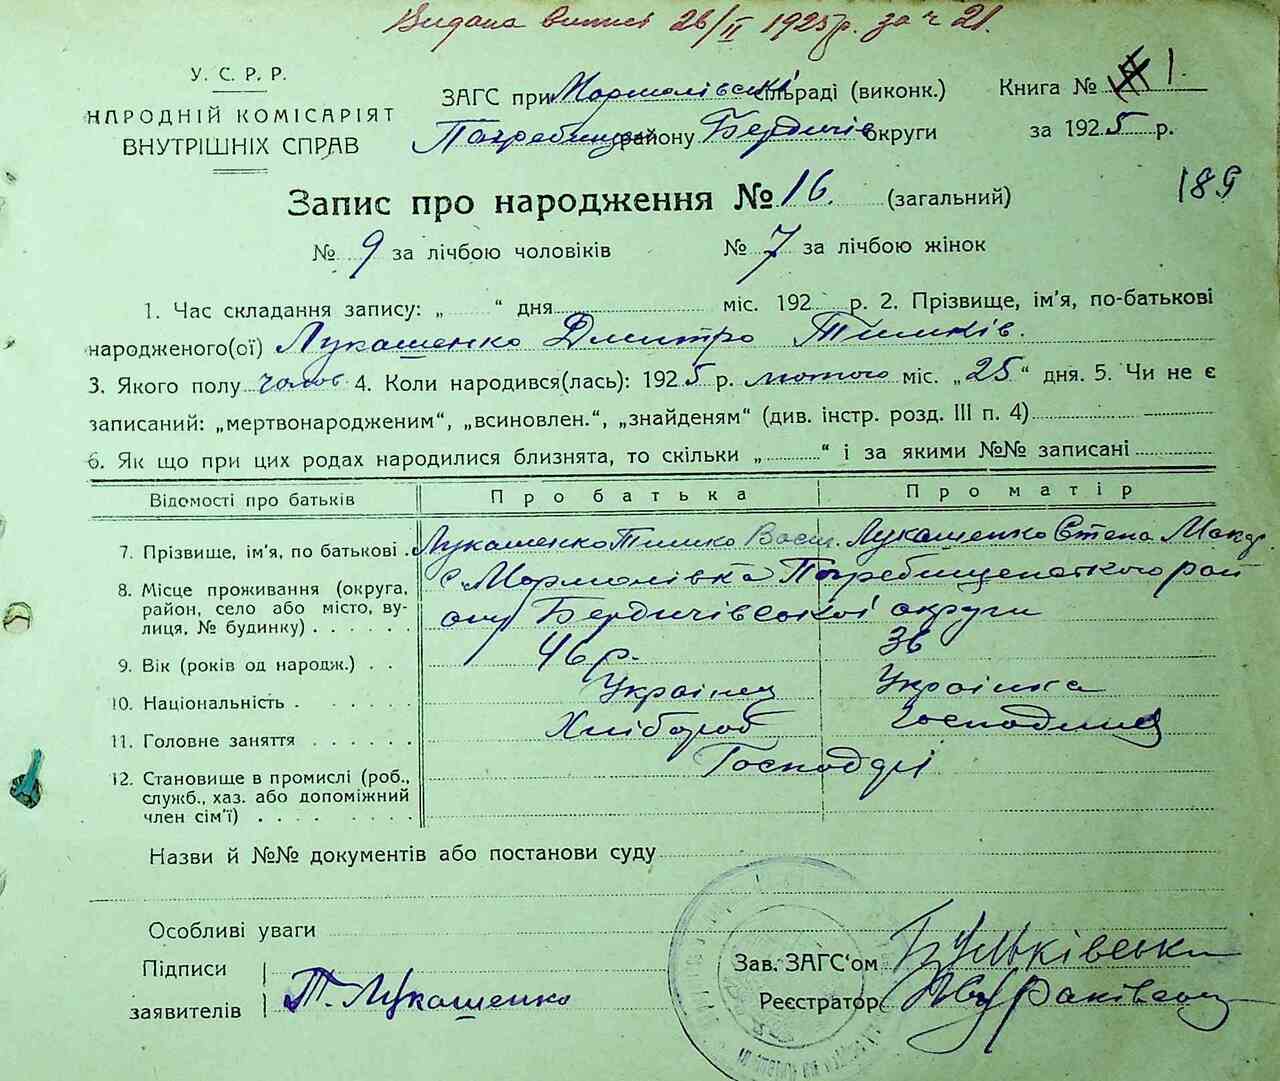 Видана випис 26/II 1925 р. за ч 21.
У. С. Р. Р.
НАРОДНІЙ КОМІСАРІЯТ
ВНУТРІШНІХ СПРАВ
ЗАГС при сільраді (виконк.)
району Бердичів округи
Книга № 1.
за 1925 р.
Запис про народження № 16. (загальний)
189
№ 9 за лічбою чоловіків № 7 за лічбою жінок
1. Час складання запису: „ “ дня міс. 192 р. 2. Прізвище, ім'я, по-батькові
народженого(ої) Лукашенко Дмитро Тимків.
3. Якого полу чолов 4. Коли народився(лась): 1925 р. лютого міс. „25“ дня. 5. Чи не є
записаний: „мертвонародженим“, „всиновлен.“, „знайденям“ (див. інстр. розд. III п. 4)
6. Як що при цих родах народилися близнята, то скільки „ “ і за якими №№ записані
Відомості про батьків Про батька Про матір
7. Прізвище, ім'я, по батькові Лукашенко Тимко Вас. Лукашенко Степа Макар
8. Місце проживання (округа, с.
район, село або місто, ву-
лиця, № будинку) Бердичівської округи
9. Вік (років од народж.) 46 р. 36
10. Національність Українец Українка
11. Головне заняття Хлібороб Господиня
12. Становище в промислі (роб.,
служб., хаз. або допоміжний
член сім'ї)
Назви й №№ документів або постанови суду
Особливі уваги
Підписи
заявителів Т. Лукашенко
Зав. ЗАГС'ом
Реєстратор